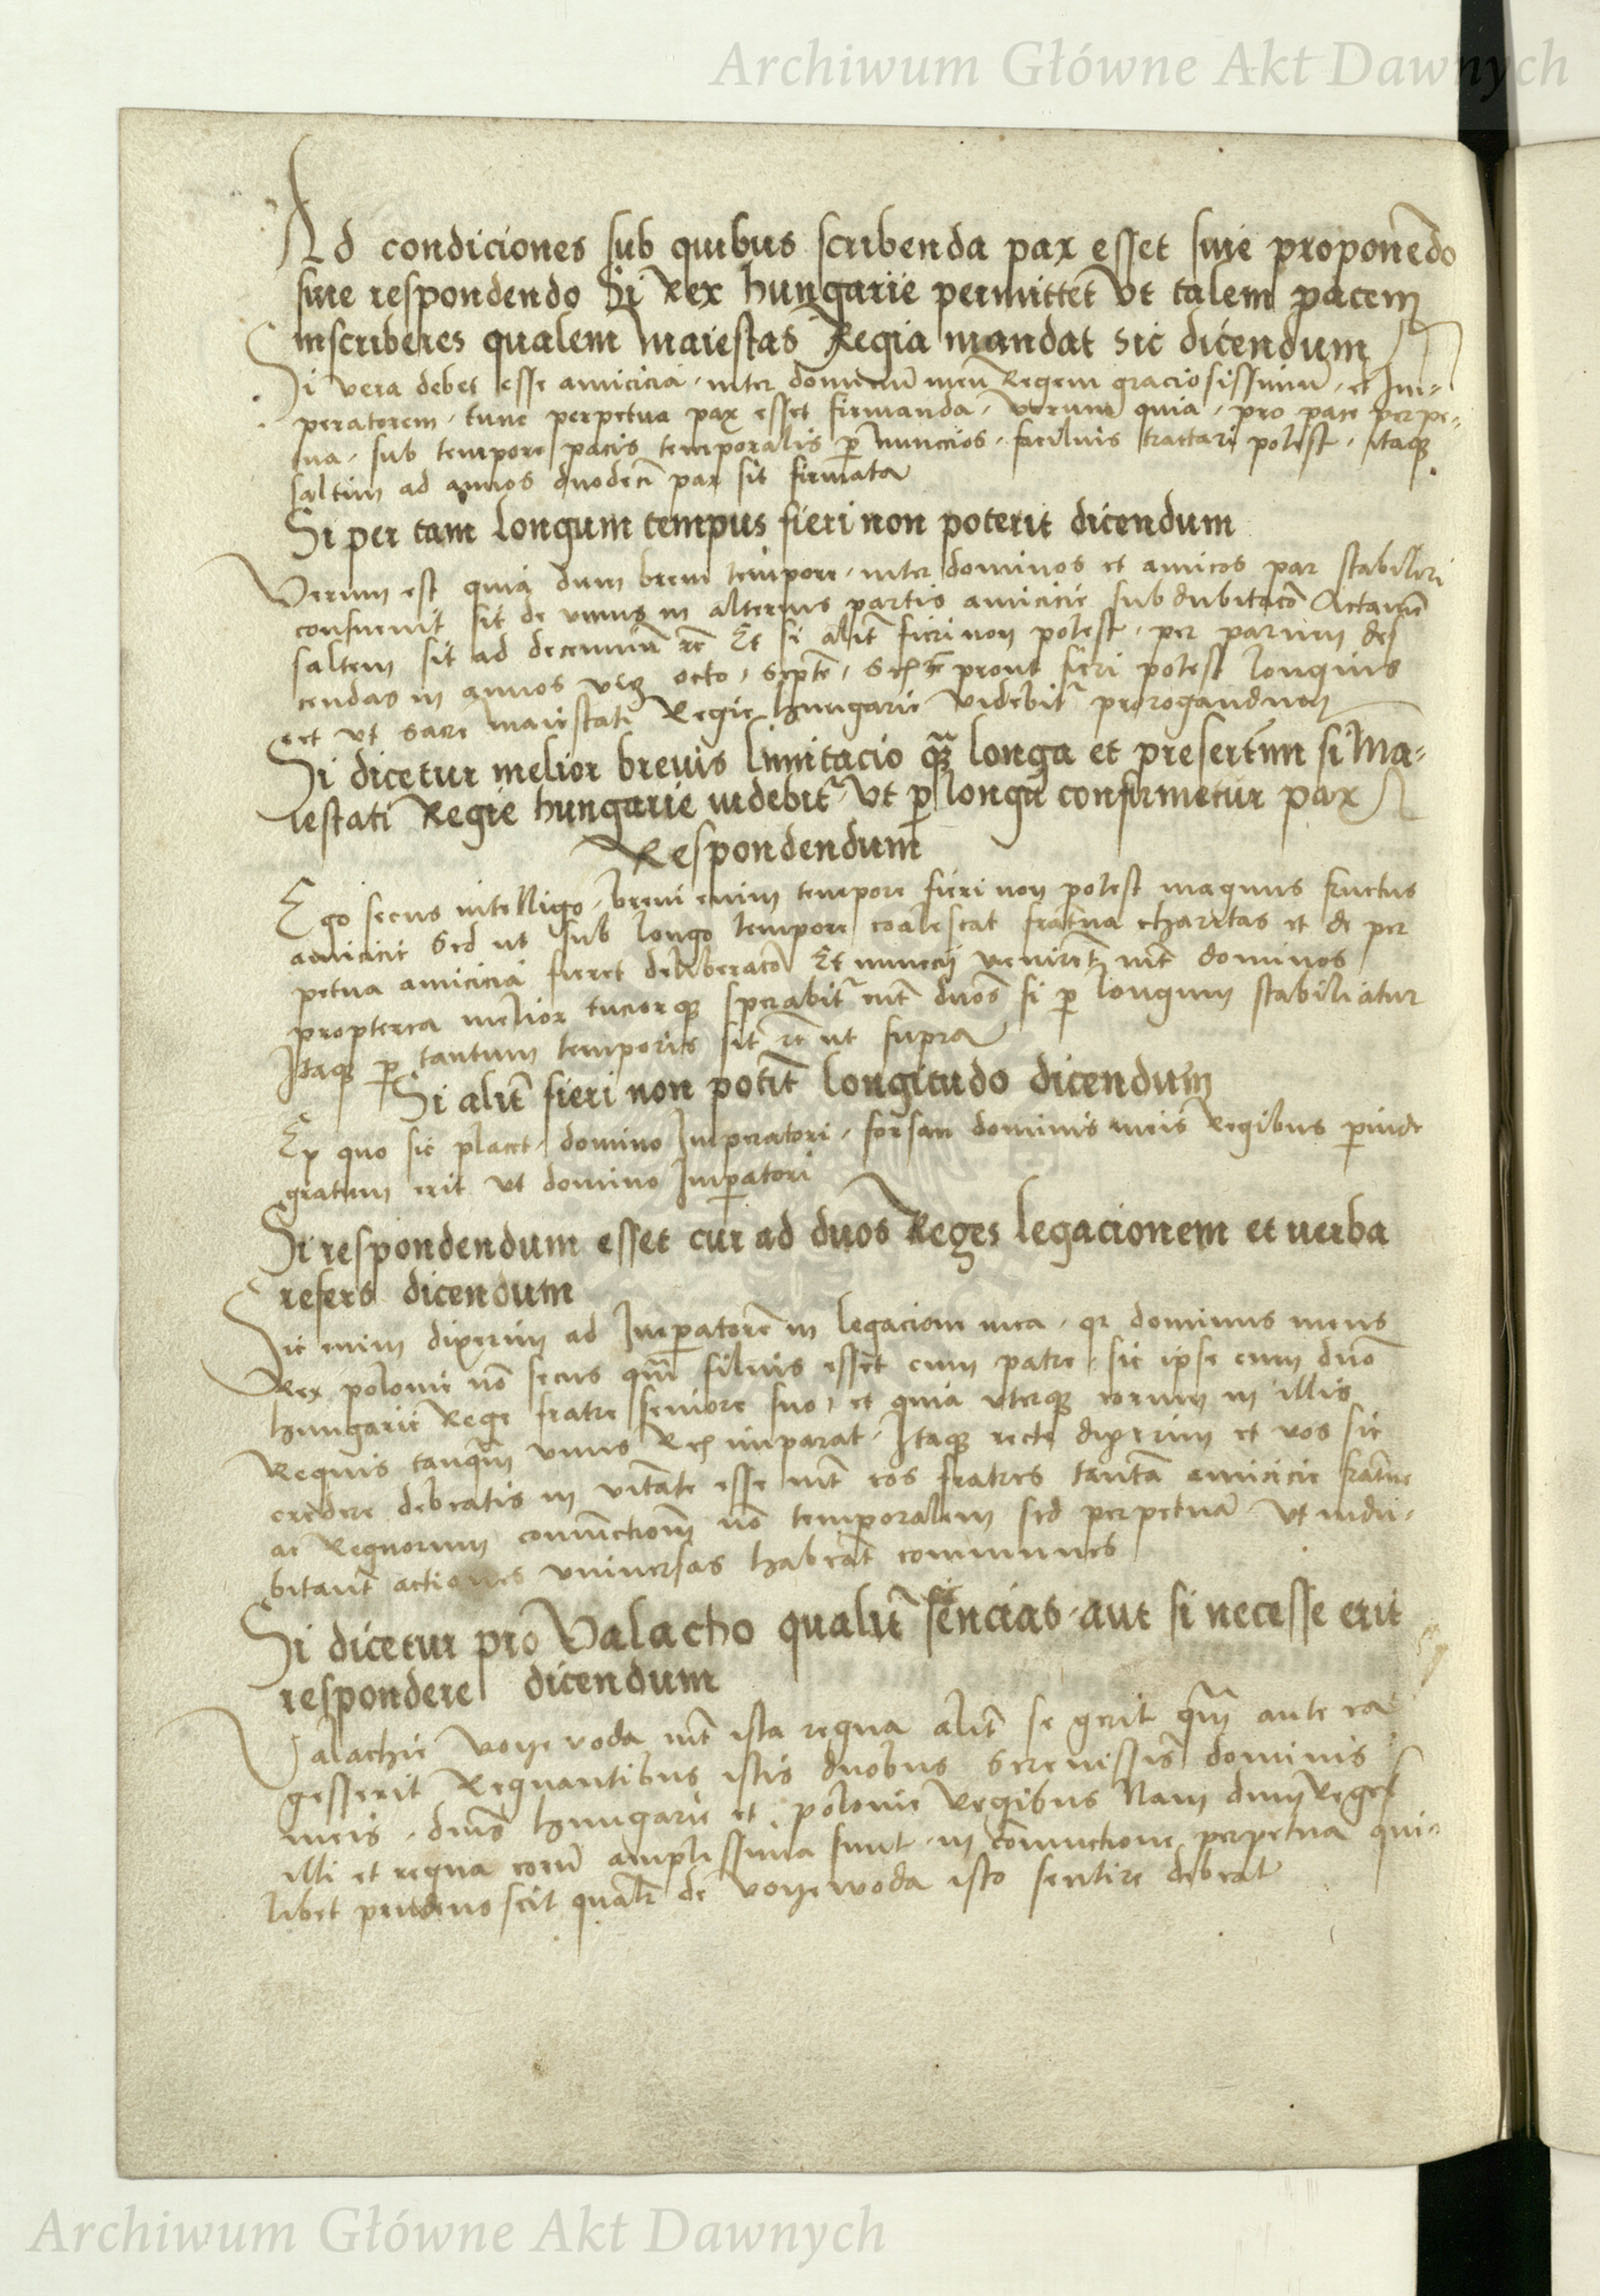 Archiwum Główne Akt Dawnych
Ad condiciones sub quibus scribenda pax esset siue proponēdo
siue respondendo Si Rex hungarie permittet Vt talem pacem
inscriberes qualem Maiestas Regia mandat sic dicendum
Si vera debet esse amicicia, inter dominū meū Regem graciosissimū, et Im-
peratorem, tunc perpetua pax esset firmanda, Verum quia, pro pace perpe-
tua, sub tempore pacis temporalis p nunccios, facilius tractari potest, itaq
saltim ad annos duodecī pax sit firmata
Si per tam longum tempus fieri non poterit dicendum
Verum est quia dum brevi tempore, inter dominos et amicos pax stabiliri
consuevit sit de unius in alterius partis amicicie subdubitacō
saltem sit ad decennium rē Et si alīt fieri non potest, per parum des
cendas in annos octo, septē, sex prout fieri potest longius
et ut sacre maiestati Regie hungarie videbit prorogandum
Si dicetur melior brevis limitacio q longa et presertim si Ma-
iestati Regie hungarie videbit Vt p longū confirmetur pax
Respondendum
Ego secus intelligo, brevi enim tempore fieri non potest magnus fructus
amicicie Sed ut sub longo tempore coalescat frat̄na charitas et de per
petua amicicia fieret deliberacō Et nuncii venirēt int̄ dominos
propterea melior tuciorq sperabit int̄ duos si p longum stabiliatur
Itaq p tantum temporis sit rē ut supra
Si alīt fieri non potit longitudo dicendum
Ex quo sic placet, domino Imperatori, forsan dominis meis Regibus pinde
gratum erit Vt domino Impatori
Si respondendum esset cur ad duos Reges legacionem et verba
refers dicendum
Sic enim dixerim ad Impatorē in legacione mea, q dominus meus
Rex polonie nō secus qm̄ filius esset cum patre, sic ipse cum dnō
hungarie Rege fratre seniore suo, et quia uterq eorum in illis
Regnis tanqm̄ unus Rex imparat, Itaq recte dixerim et vos sic
credere debeatis in vītate esse int̄ eos fratres tantā amicicie frat̄ne
ac Regnorum coniunctionē nō temporalem sed perpetuā Vt indu-
bitant̄ actiones universas habeāt communes
Si dicetur pro Valacho qualīt sencias, aut si necesse erit
respondere dicendum
Valachie Woyewoda int̄ ista regna alīt se gerit qm̄ ante ea
gesserit Regnantibus istis duobus Serenissīs dominis
meis, dnīs hungarie et polonie Regibus Nam dum Reges
illi et regna eorū amplissima sunt, in coniunctione perpetua qui-
libet prudens scit qualīt de Voyewoda isto sentire debeat
Archiwum Główne Akt Dawnych